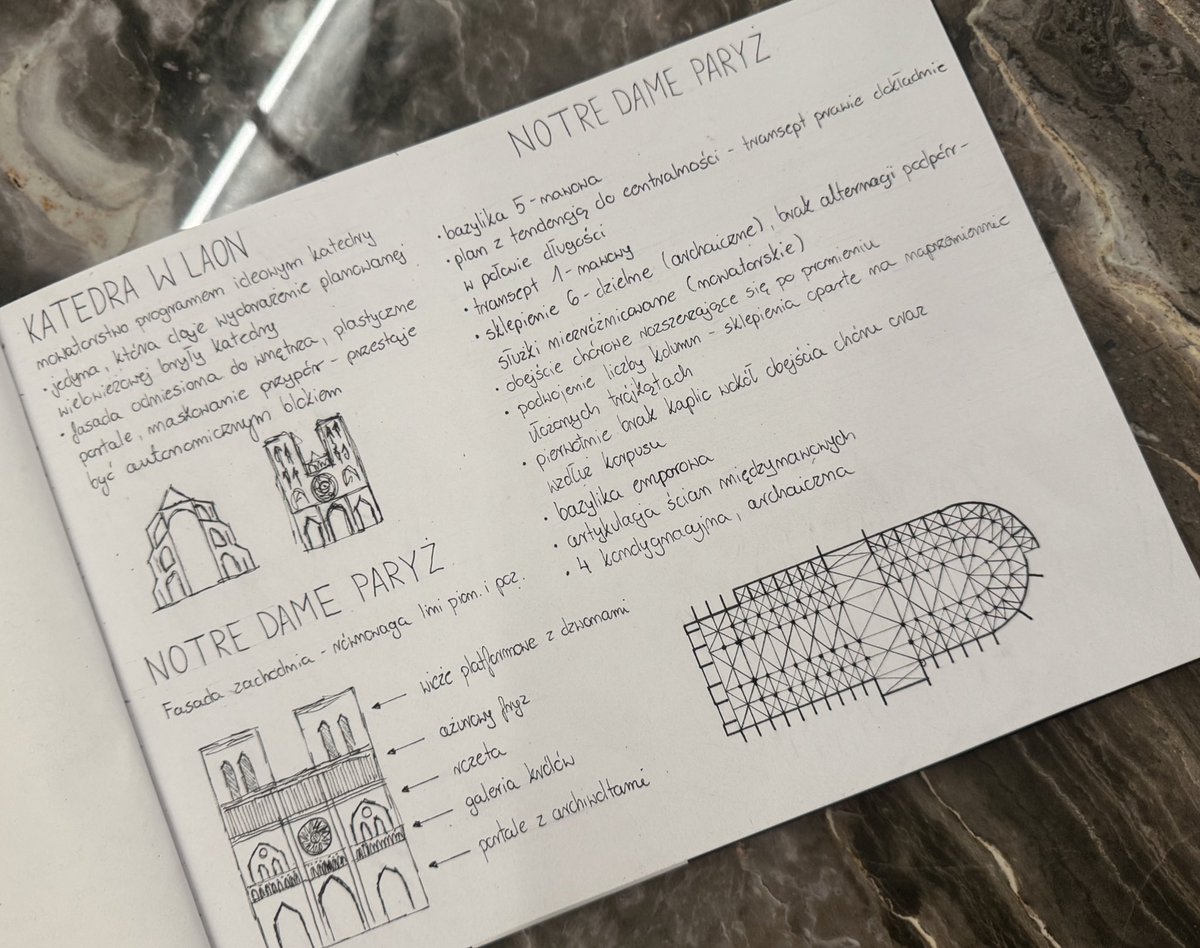 KATEDRA W LAON
nowatorstwo programem ideowym katedry
• jedyna, która daje wyobrażenie planowanej
wielowieżowej bryły katedry
• fasada odniesiona do wnętrza, plastyczne
portale, maskowanie przypór - przestaje
być autonomicznym blokiem
NOTRE DAME PARYŻ
Fasada zachodnia - równowaga linii pion. i poz.
wieże platformowe z dzwonami
ażurowy fryz
rozeta
galeria królów
portale z archiwoltami
NOTRE DAME PARYŻ
• bazylika 5-nawowa
• plan z tendencją do centralności - transept prawie dokładnie
w połowie długości
• transept 1-nawowy
• sklepienie 6-dzielne (archaiczne), brak alternacji podpór -
służki niezróżnicowane (nowatorskie)
• obejście chórowe rozszerzające się po promieniu
• podwojenie liczby kolumn - sklepienia oparte na naprzemiennie
łączonych trójkątach
• pierwotnie brak kaplic wokół obejścia chóru oraz
wzdłuż korpusu
• bazylika emporowa
• artykulacja ścian międzynawowych
• 4 kondygnacyjna, archaiczna